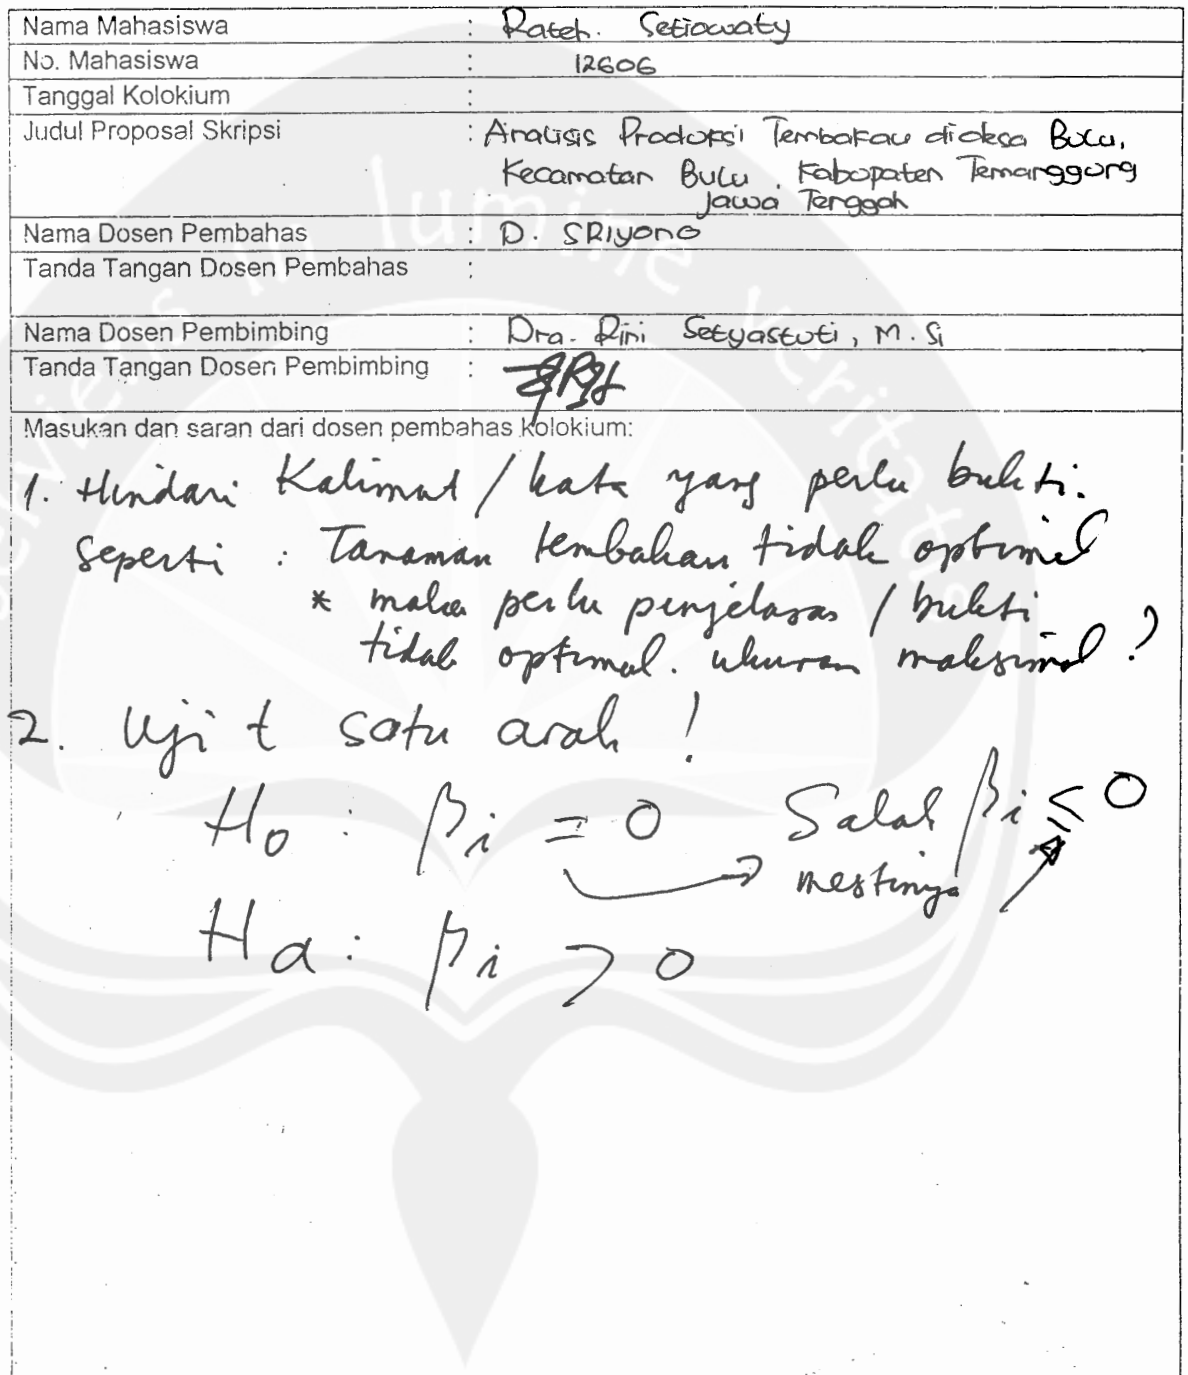 Nama Mahasiswa : Rateh. Setiawaty
No. Mahasiswa : 12606
Tanggal Kolokium :
Judul Proposal Skripsi : Analisis Produksi Tembakau didesa Bulu,
Kecamatan Bulu, Kabupaten Temanggung
Jawa Tenggah
Nama Dosen Pembahas : D. SRiyono
Tanda Tangan Dosen Pembahas :
Nama Dosen Pembimbing : Dra. Rini Setyastuti, M. Si
Tanda Tangan Dosen Pembimbing :
Masukan dan saran dari dosen pembahas kolokium:
1. Hindari Kalimat / kata yang perlu bukti.
seperti : Tanaman tembakau tidak optimal
* maka perlu penjelasan / bukti
tidak optimal. ukuran maksimal ?
2. Uji t satu arah !
Ho : βi = 0 Salah βi ≤ 0
mestinya
Ha : βi > 0
lumine veritatis